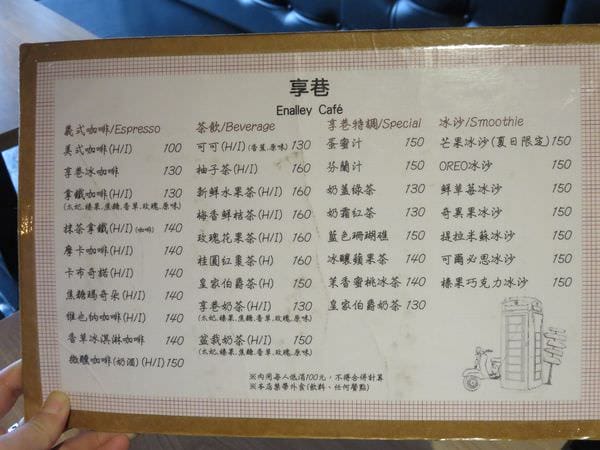 享巷
Enalley Café
義式咖啡/Espresso
美式咖啡(H/I) 100
享巷冰咖啡 130
拿鐵咖啡(H/I) 130
(太妃,榛果,焦糖,香草,玫瑰,原味)
抹茶拿鐵(H/I)(咖啡) 140
摩卡咖啡(H/I) 140
卡布奇諾(H/I) 140
焦糖瑪奇朵(H/I) 140
維也納咖啡(H/I) 140
香草冰淇淋咖啡 140
微醺咖啡(奶酒)(H/I) 150
茶飲/Beverage
可可(H/I)(香蕉,原味) 130
柚子茶(H/I) 160
新鮮水果茶(H/I) 160
梅香鮮桔茶(H/I) 160
玫瑰花果茶(H/I) 160
桂圓紅棗茶(H) 160
皇家伯爵茶(H) 150
享巷奶茶(H/I) 130
(太妃,榛果,焦糖,香草,玫瑰,原味)
盆栽奶茶(H/I) 150
(太妃,榛果,焦糖,香草,玫瑰,原味)
享巷特調/Special
蛋蜜汁 150
芬蘭汁 150
奶蓋綠茶 130
奶霜紅茶 130
藍色珊瑚礁 150
冰釀蘋果茶 140
茉香蜜桃冰茶 140
皇家伯爵奶茶 130
冰沙/Smoothie
芒果冰沙(夏日限定) 150
OREO冰沙 150
鮮草莓冰沙 150
奇異果冰沙 150
提拉米蘇冰沙 150
可爾必思冰沙 150
榛果巧克力冰沙 150
※內用每人低消100元,不得合併計算
※本店禁帶外食(飲料、任何餐點)